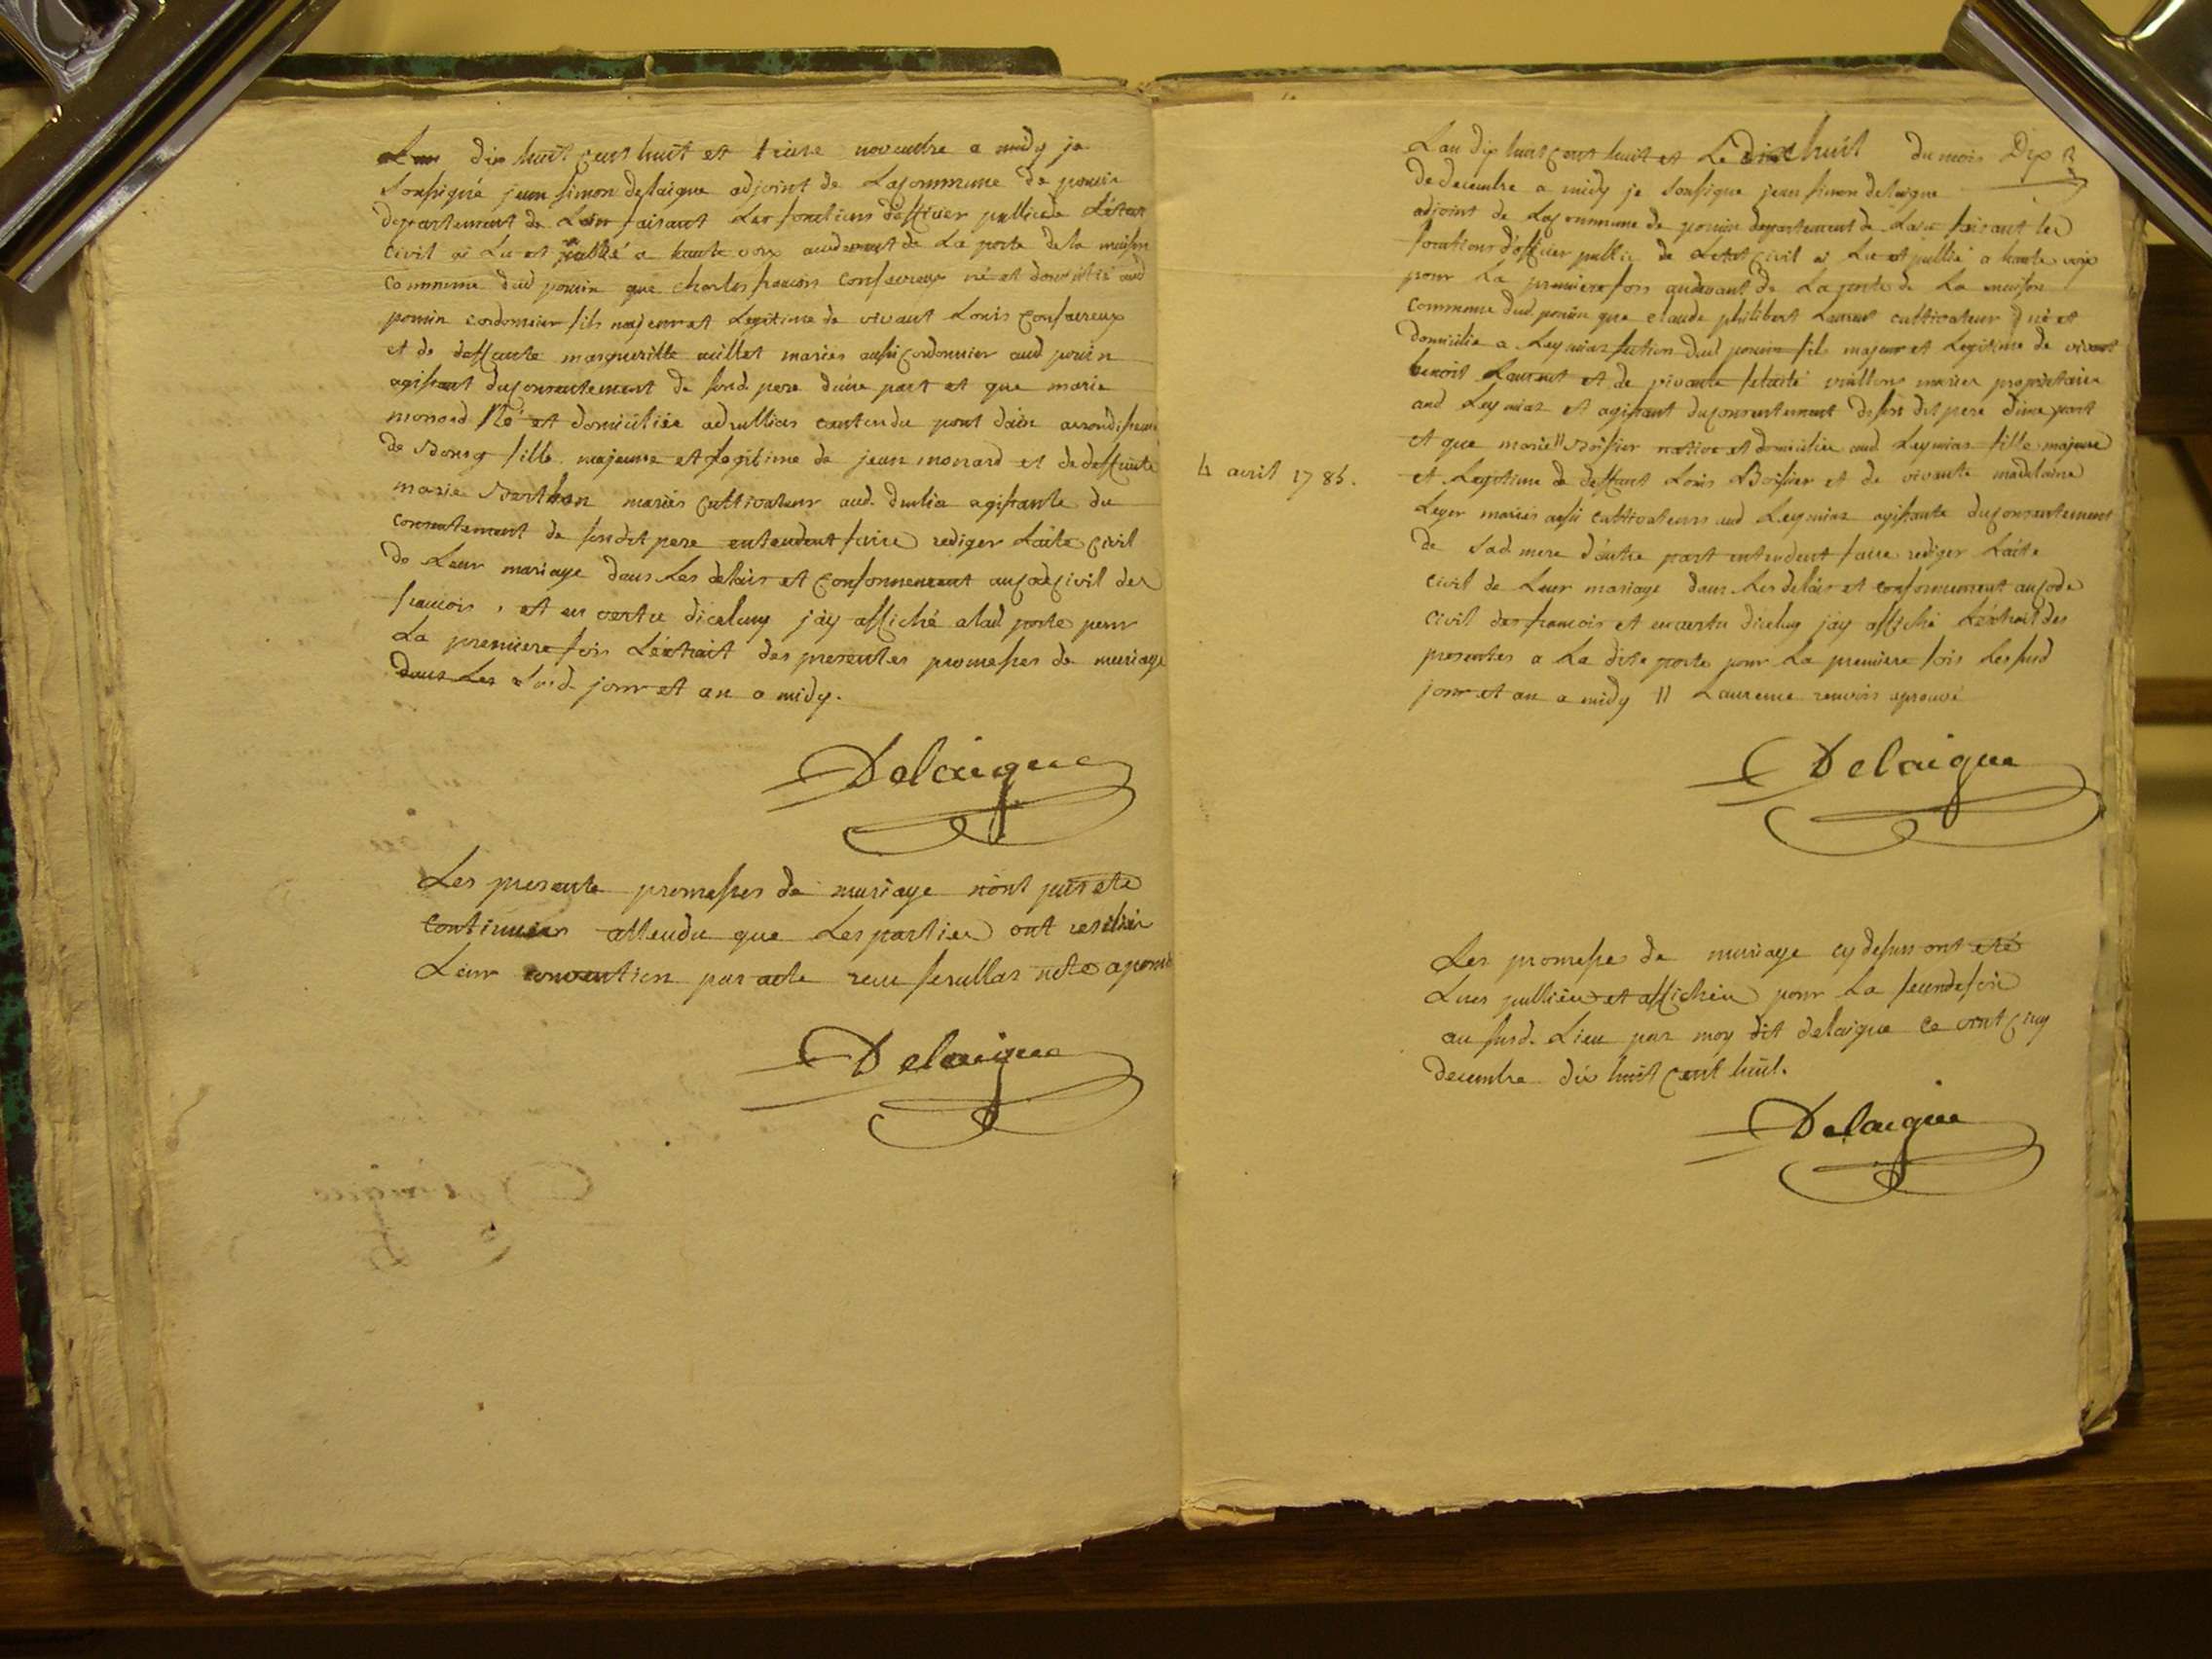 Lan dix huit cent huit et treize novembre a midy je
soussigné jean simon delaigue adjoint de La commune de poncin
departement de Lain faisant Les fonctions dofficier publicde Létat
civil ai Lu et publié a haute voix audevant de La porte de la maison
commune dud poncin que charles francois né et domicilié aud
poncin cordonnier fils majeur et Legitime de vivant Louis
et de deffunte margueritte millet mariés aussi cordonnier aud poncin
agissant du consentement de sond. pere dune part et que marie
monard Né et domiciliée a druillias canton du pont dain arrondissem
de Bourg fille majeure et Legitime de jean monard et de deffunte
marie Berthon mariés cultivateur aud. drulia agissante du
consentement de sondit pere entendent faire rediger Laite civil
de Leur mariage dans Les delais et conformement au code civil des
francois, et en vertu diceluy jáy affiché alad porte pour
La premiere fois Léxtrait des presentes promesses de mariage
dans Les susd. jour et an a midy.
Delaigue
Les presente promesses de mariage nónt pas eté
continuées attendu que Les parties ont resiliér
Leur convention par acte recu note a poncin
Delaigue
Lan dix huit cent huit et Le dix huit du mois Dix
de decembre a midy je soussigne jean simon delaigue
adjoint de La commune de poncin departement de Lain faisant les
fonctions d'officier public de Letat civil ai Lu et publié a haute voix
pour La premiere fois audevant de La porte de La maison
commune dud. poncin que claude philibert Laurent cultivateur né et
domicilié a Leymiaz section dud poncin fils majeur et Legitime de vivant
benoit Laurent et de vivante mariés proprietaires
aud Leymiaz et agissant du consentement de son dit pere dune part
et que marie 11 Boissier native et domiciliée aud. Leymiaz fille majeure
4 avril 1785.
et Legitime de deffunt Loüis Boissier et de vivante madelaine
Leger mariés aussi cultivateurs aud Leymiaz agissante du consentement
de sad. mere dáutre part entendent faire rediger Láite
civil de Leur mariage dans Les delais et conformement au code
civil des francois et en vertu diceluy jáy affiché Léxtrait des
presentes a La dite porte pour La premiere fois Les susd
jour et an a midy 11 Laurence renvois aprouvé
Delaigue
Les promesses de mariage cy dessus ont eté
Lues publiées et affichées pour La seconde fois
au susd. Lieu par moy dit delaigue ce vint cinq
decembre dix huit cent huit.
Delaigue